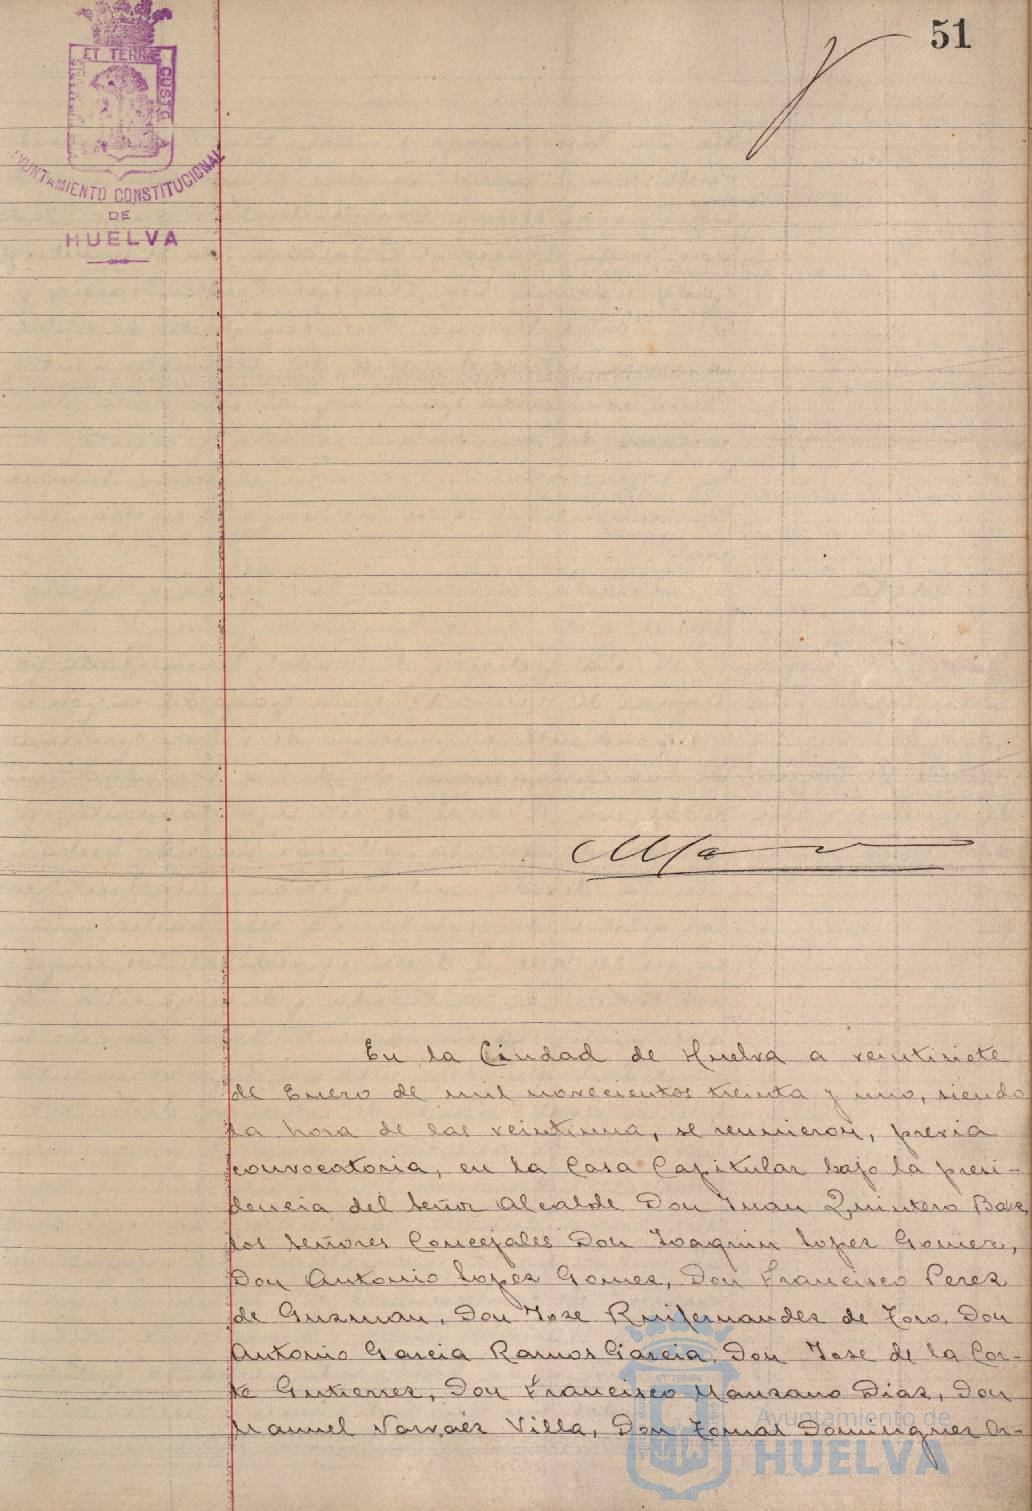 51
ET TERRÆ CUSTO
AYUNTAMIENTO CONSTITUCIONAL
DE
HUELVA
En la Ciudad de Huelva a veintisiete
de Enero de mil novecientos treinta y uno, siendo
la hora de las veintiuna, se reunieron, previa
convocatoria, en la Casa Capitular bajo la presi-
dencia del Señor Alcalde Don Juan Quintero Baez
los Señores Concejales Don Joaquin Lopez Gomez,
Don Antonio Lopez Gomez, Don Francisco Perez
de Guzman, Don Jose Ruifernandez de Toro, Don
Antonio Garcia Ramos Garcia, Don Jose de la Cor-
te Gutierrez, Don Francisco Manzano Diaz, Don
Manuel Narvaez Villa, Don Tomas Dominguez Or-
Ayuntamiento de
HUELVA